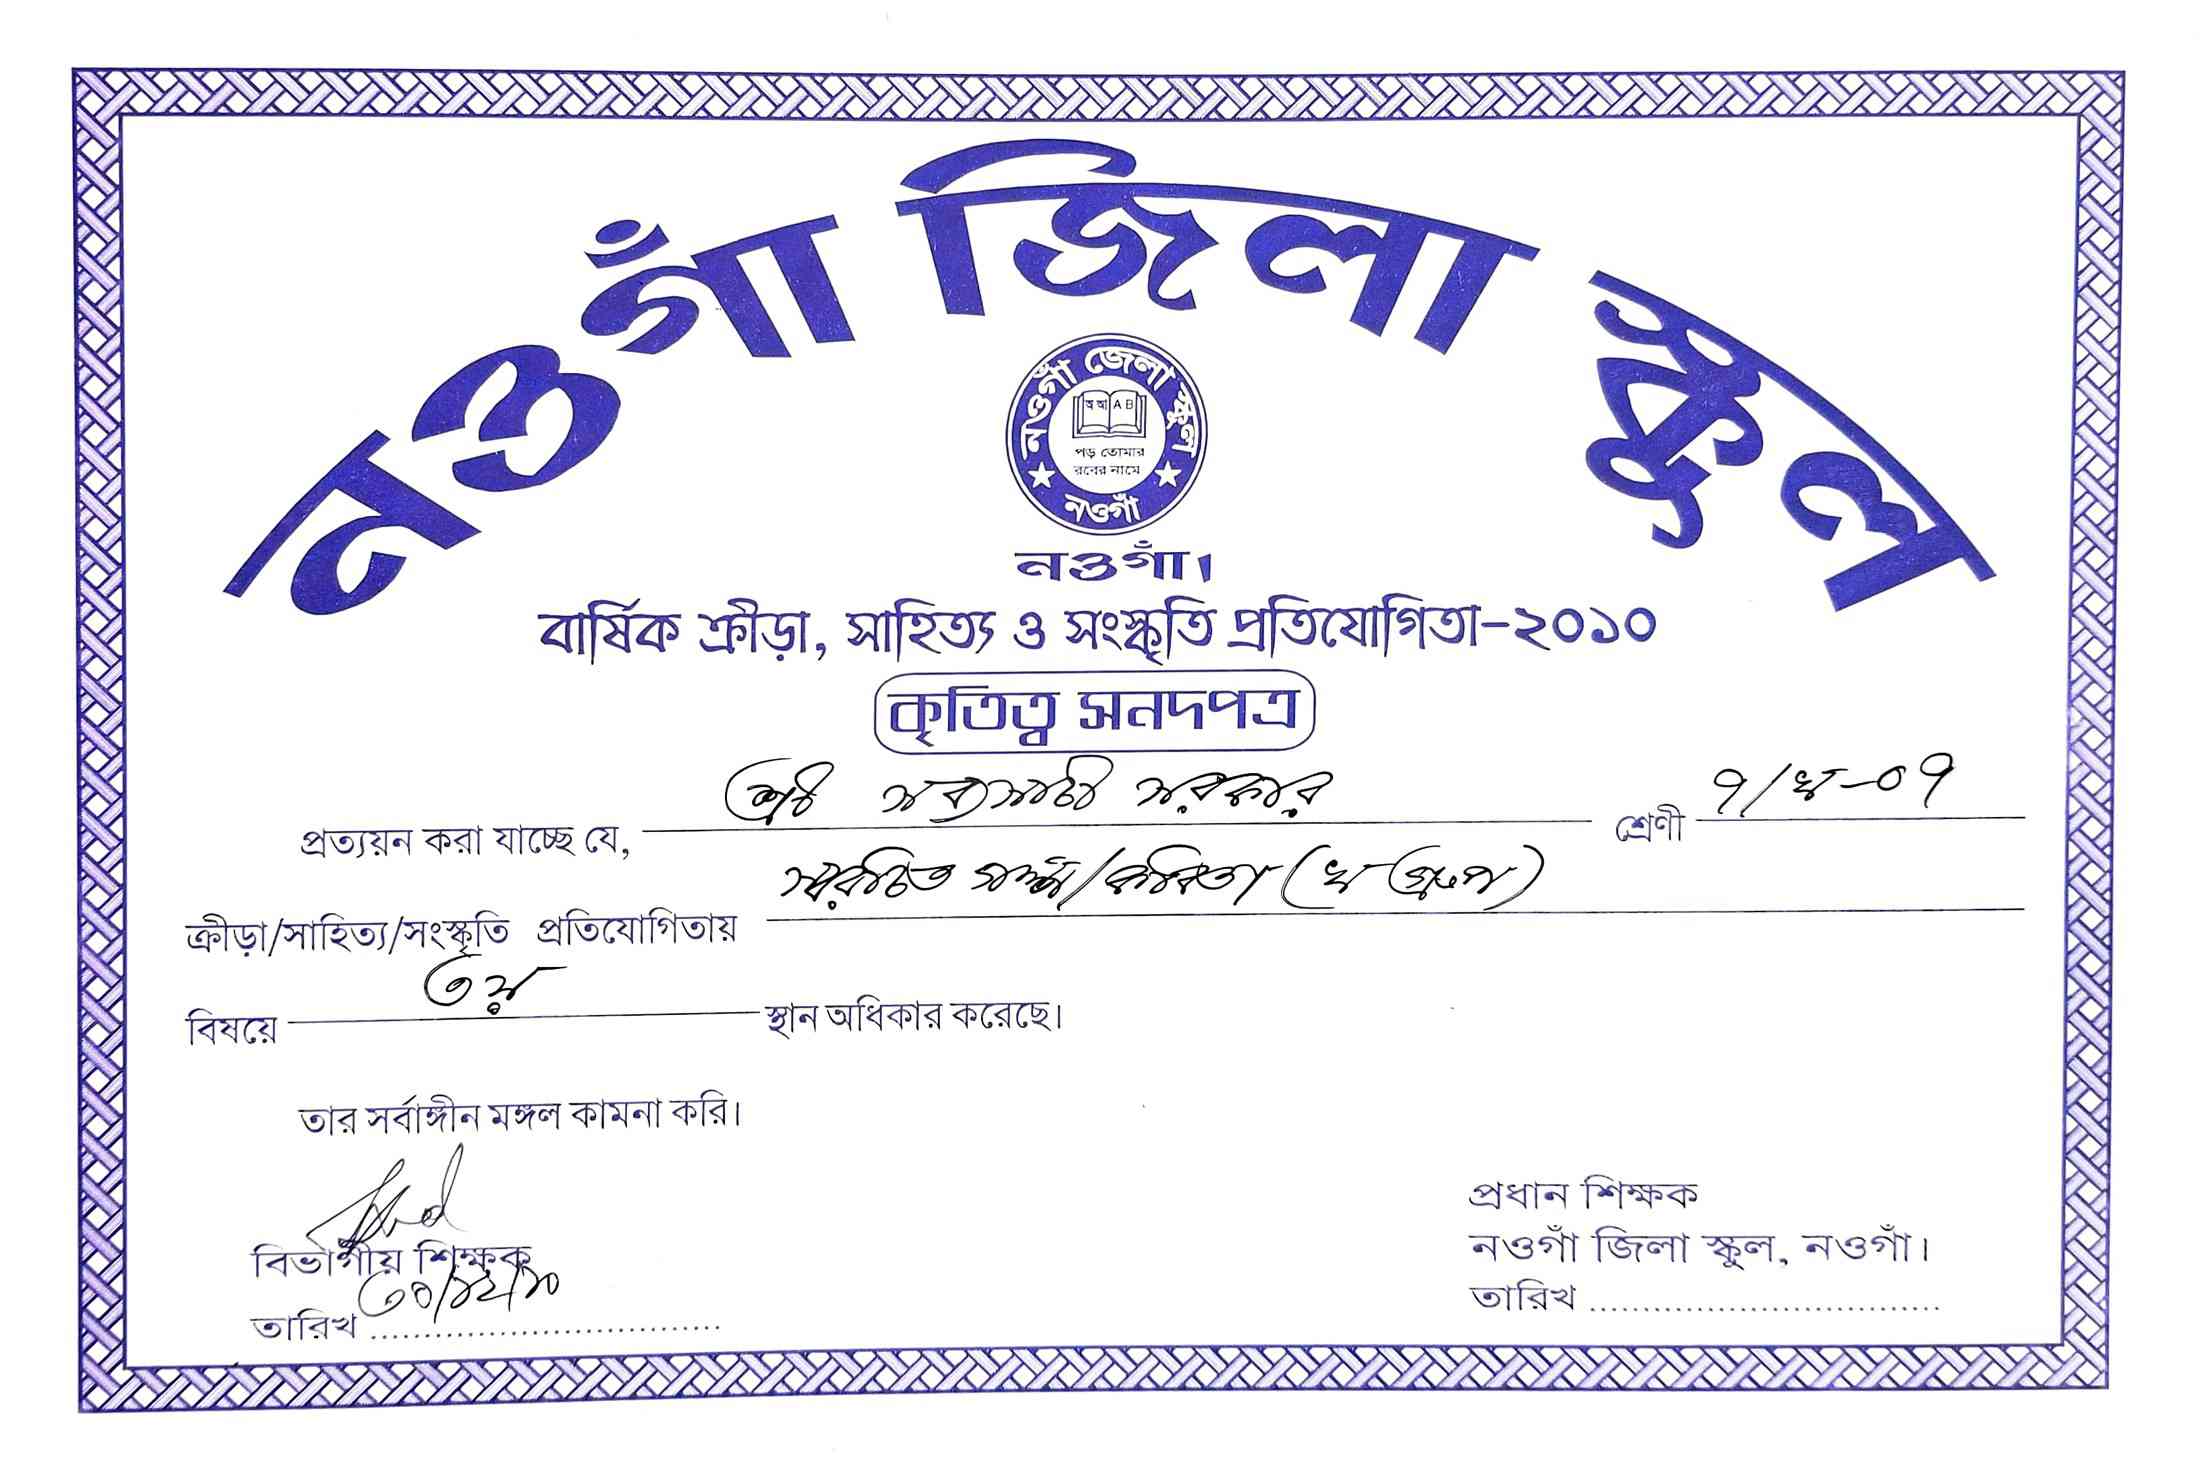 নওগাঁ জিলা স্কুল
নওগাঁ জেলা স্কুল
অ আ A B
পড় তোমার
রবের নামে
নওগাঁ
নওগাঁ।
বার্ষিক ক্রীড়া, সাহিত্য ও সংস্কৃতি প্রতিযোগিতা-২০১০
কৃতিত্ব সনদপত্র
প্রত্যয়ন করা যাচ্ছে যে, শ্রী সব্যসাচী সরকার শ্রেণী ৭/খ-০৭
ক্রীড়া/সাহিত্য/সংস্কৃতি প্রতিযোগিতায় স্বরচিত গল্প/কবিতা (খ গ্রুপ)
বিষয়ে ৩য় স্থান অধিকার করেছে।
তার সর্বাঙ্গীন মঙ্গল কামনা করি।
বিভাগীয় শিক্ষক
তারিখ ৩০/১২/১০
প্রধান শিক্ষক
নওগাঁ জিলা স্কুল, নওগাঁ।
তারিখ